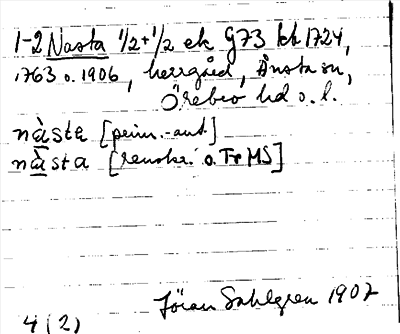 1-2 Nasta 1/2+1/2 ek G73 kt. 1724,
1763 o. 1906, herrgård, Ånsta sn,
Örebro hd o. l.
näste [prim.-ant.]
nästa [renskr. o. Fr MS]
Jöran Sahlgren 1907
4 (2)